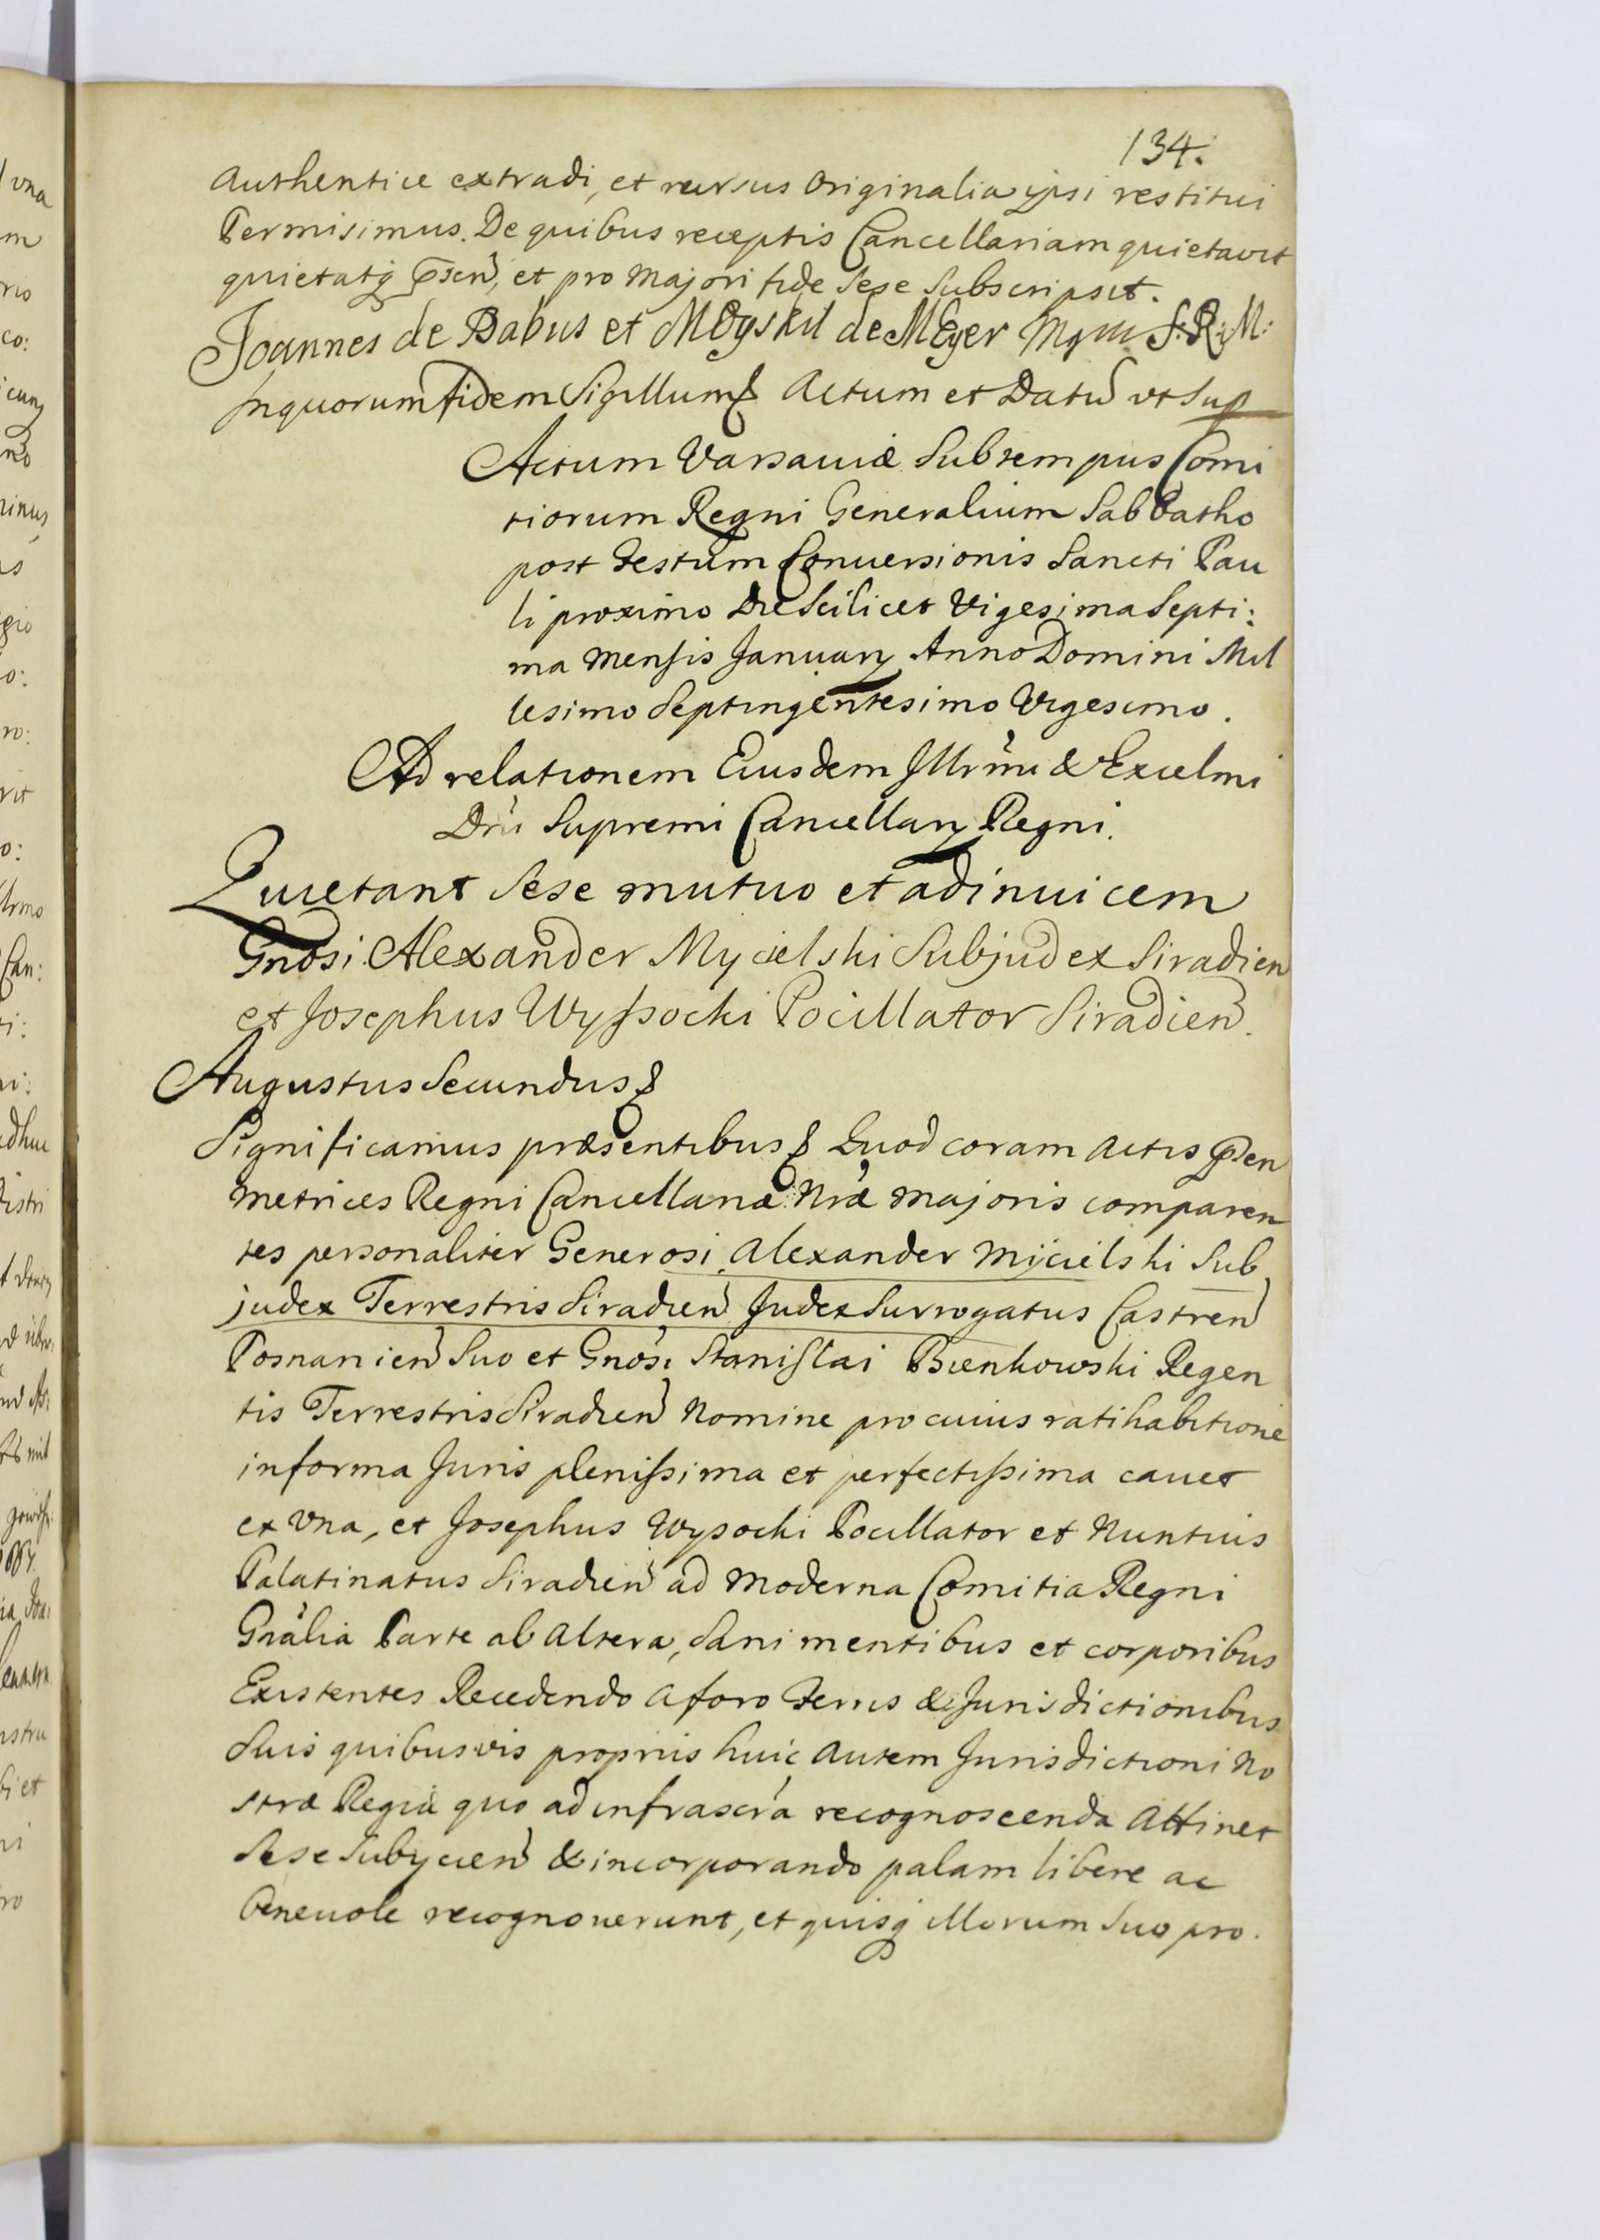 134.
Authentice extradi, et rursus Originalia ipsi restitui
Permisimus. De quibus receptis Cancellariam quietavit
quietatq̃ p̃sen̄, et pro Majori fide Sese Subscripsit.
Joannes de Babus et de Meyer S: R: M:
Inquorum fidem Sigillum Actum et Datũ vt Sup
Actum Varsauiæ Sub tempus Comi
tiorum Regni Generalium Sabbatho
post Festum Conuersionis Sancti Pau
li proximo Die Scilicet Vigesima Septi:
ma Mensis Januarij Anno Domini Mil
lesimo Septingentesimo Vigesimo.
Ad relationem Eiusdem Illrm̃i & Excelmi
Dñi Supremi Cancellarij Regni.
Quietant Sese mutuo et adinuicem
Gnõsi Alexander Mycielski Subjudex Siradien
et Josephus Wyssocki Pocillator Siradien̄.
Augustus Secundus
Significamus præsentibus Quod coram Actis p̃sen
Metrices Regni Cancellariæ Nr̃æ Majoris comparen
tes personaliter Generosi Alexander Mijcielski Sub
judex Terrestris Siradien̄ Judex Surrogatus Castren̄
Posnanien̄ Suo et Gnõsi Stanislai Bienkowski Regen
tis Terrestris Siradien̄ Nomine pro cuius ratihabitione
in forma Juris plenissima et perfectissima cauet
ex Vna, et Josephus Wysocki Pocillator et Nuntius
Palatinatus Siradien̄ ad Moderna Comitia Regni
Grãlia Parte ab Altera, Sani mentibus et corporibus
Existentes Recedendo a foro Terris & Jurisdictionibus
Suis quibusvis proprijs huic Autem Jurisdictioni No
stræ Regiæ quo ad infrascr̃a recognoscenda Attinet
Sese Subijcien̄ & incorporando palam libere ac
beneuole recognouerunt, et quisq̃ illorum Suo pro.